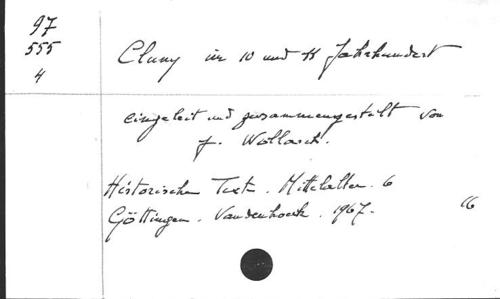 97
555
4
Cluny im 10 und 11 Jahrhundert
eingeleit und zusammengestellt von
J. Wollasch.
Historische Texte. Mittelalter. 6
Göttingen. Vandenhoeck. 1967.